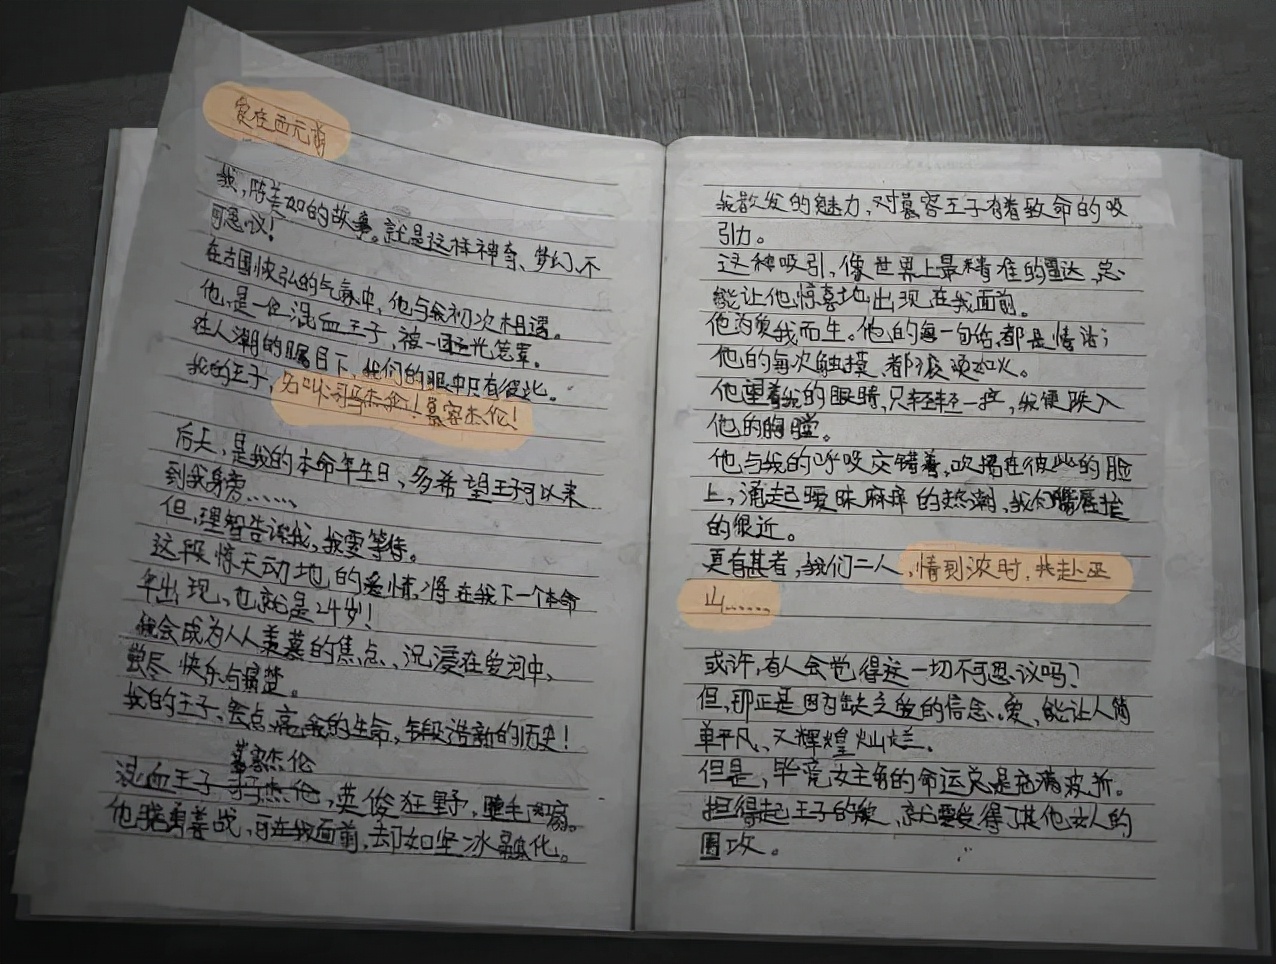 爱在西元前
我,陈美如的故事。就是这样神奇、梦幻、不
可思议!
在古国恢弘的气氛中,他与我初次相遇。
他,是一位混血王子,被一团光笼罩。
在人潮的瞩目下,我们的眼中只有彼此。
我的王子,名叫杰伦!慕容杰伦!
后天,是我的本命年生日、多希望王子可以来
到我身旁......
但,理智告诉我,我要等待。
这段惊天动地的爱情,将在我下一个本命
年出现,也就是24岁!
我会成为人人羡慕的焦点、沉浸在爱河中,
尝尽快乐与痛楚。
我的王子、会点亮我的生命,锻造新的历史!
慕容杰伦
混血王子 杰伦,英俊狂野,
他骁勇善战,可在我面前,却如坚冰融化。
我散发的魅力,对慕容王子有着致命的吸
引力。
这种吸引,像世界上最精准的雷达,总
能让他惊喜地出现在我面前。
他为爱我而生。他的每一句话,都是情话;
他的每次触摸,都滚烫如火。
他望着我的眼睛,只轻轻一拉,我便跌入
他的胸膛。
他与我的呼吸交错着,吹拂在彼此的脸
上,涌起暧昧麻痒的热潮,我们嘴唇挨
的很近。
更有甚者,我们二人,情到浓时,共赴巫
山......
或许,有人会觉得这一切不可思议吗?
但,那正是因为缺乏爱的信念。爱,能让人简
单平凡、又辉煌灿烂。
但是,毕竟女主角的命运总是充满波折。
担得起王子的爱,就要受得了其他女人的
围攻。